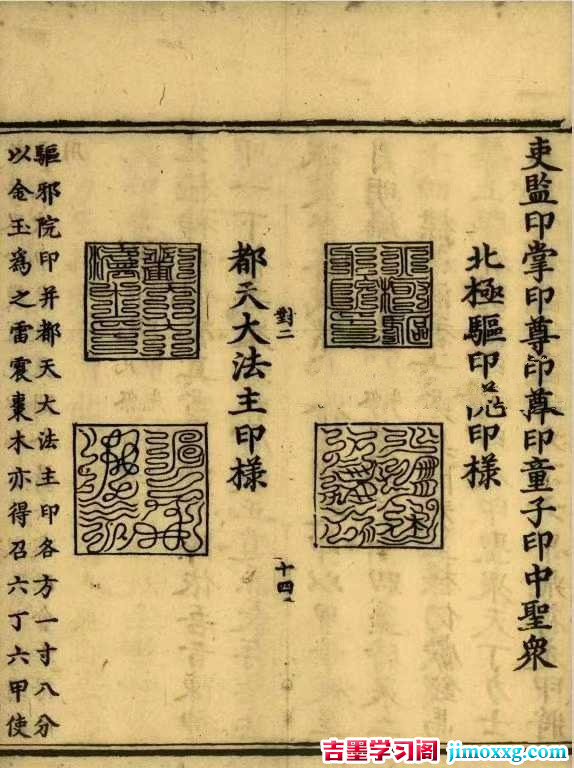 吏監印掌印尊印尊印童子印中聖衆
北極驅印印樣
對二
十四
都天大法主印樣
驅邪院印并都天大法主印各方一寸八分
以金玉爲之雷震棗木亦得召六丁六甲使
吉墨学习阁 jimoxxg.com